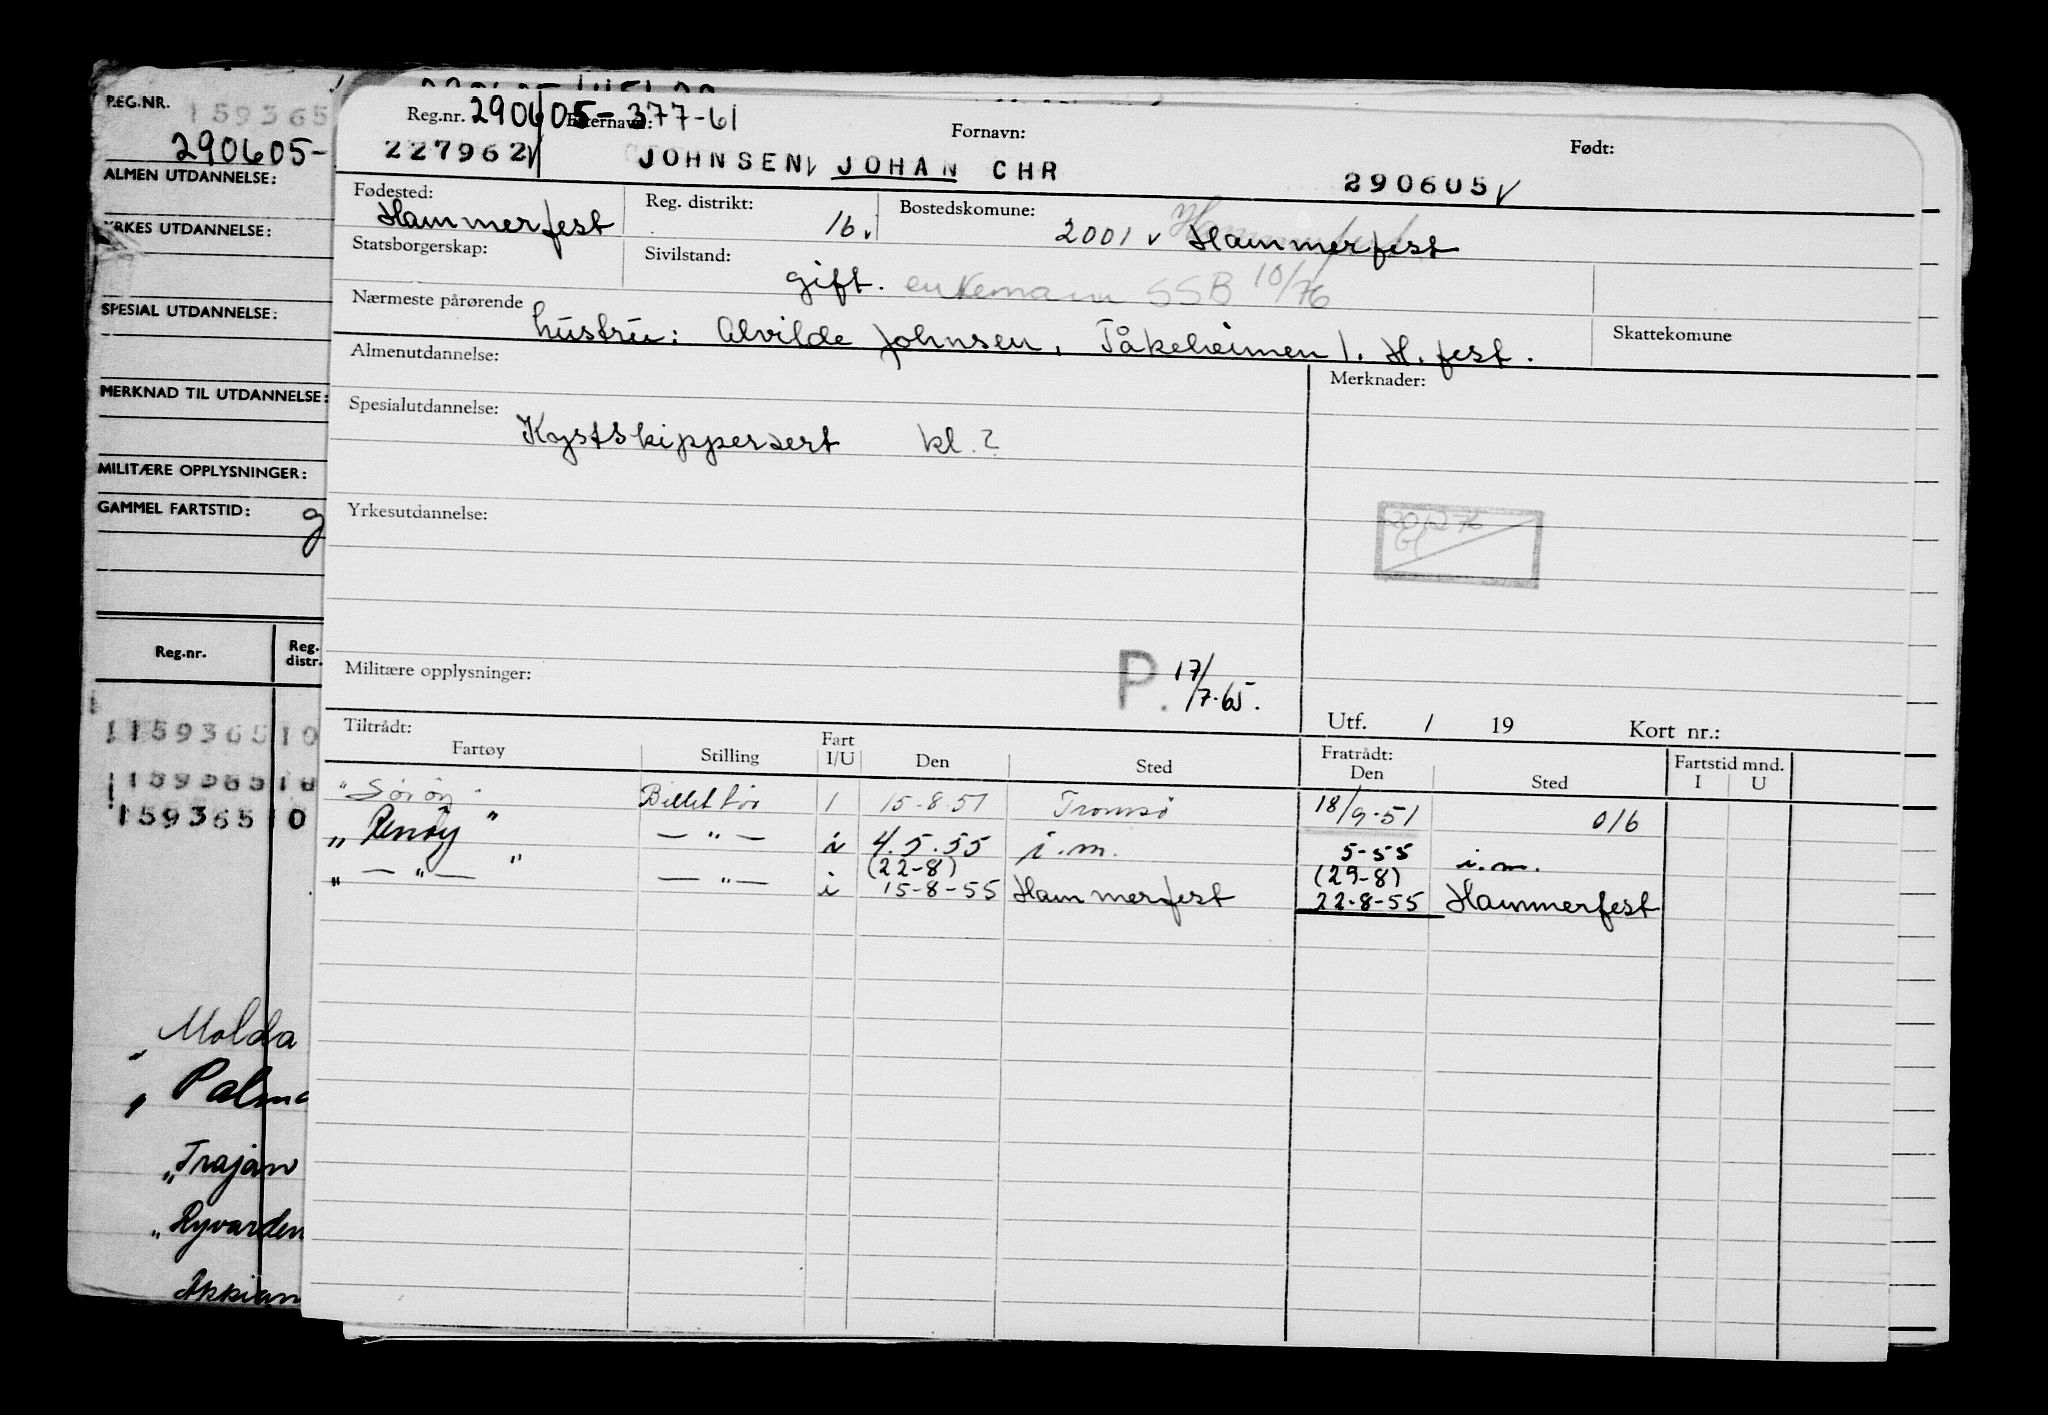 REG.NR.
159365
290605-
ALMEN UTDANNELSE:
YRKES UTDANNELSE:
SPESIAL UTDANNELSE:
MERKNAD TIL UTDANNELSE:
MILITÆRE OPPLYSNINGER:
GAMMEL FARTSTID: g
Reg.nr. Reg. distr.
159365 10
159365 10
159365 10
Molda
„ Palma
„ Trajan
„ Ryvarden
Reg.nr. 290605-377-61 Etternavn: Fornavn: Født:
227962 JOHNSEN, JOHAN CHR 290605
Fødested: Reg. distrikt: Bostedskomune:
Hammerfest 16. 2001 Hammerfest
Statsborgerskap: Sivilstand:
gift. enkemann SSB 10/76
Nærmeste pårørende Skattekomune
hustru: Alvilde Johnsen, Tåkeheimen 1. H.fest.
Almenutdannelse: Merknader:
Spesialutdannelse:
Kystskippersert kl. ?
Yrkesutdannelse:
Militære opplysninger: P. 17/7.65.
Utf. / 19 Kort nr.:
Tiltrådt: Fratrådt: Fartstid mnd.
Fartøy Stilling Fart I/U Den Sted Den Sted I U
"Sørøy" Billettør 1 15-8-51 Tromsø 18/9-51 016
„ „ — " — i 4.5.55 i.m. 5-55 i.m.
(22-8) (29-8)
„ — " — — " — i 15-8-55 Hammerfest 22-8-55 Hammerfest